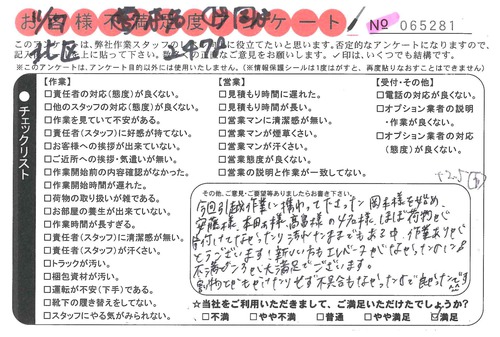 お客様不満足度アンケート
No 065281
11/7
北区
このアンケートは、弊社作業スタッフの
に役立てたいと思います。否定的なアンケートになりますので、
ご意見をお願いします。✓印は、いくつでも結構です。
※このアンケートは、アンケート目的以外には使用いたしません。(※情報保護シールは1度はがすと、再度貼りなおすことはできません)
チェックリスト
【作業】
□責任者の対応(態度)が良くない。
□他のスタッフの対応(態度)が良くない。
□作業を見ていて不安がある。
□責任者(スタッフ)に好感が持てない。
□お客様への挨拶が出来ていない。
□ご近所への挨拶・気遣いが無い。
□作業開始前の内容確認がなかった。
□作業開始時間が遅れた。
□荷物の取り扱いが雑である。
□お部屋の養生が出来ていない。
□作業時間が長すぎる。
□責任者(スタッフ)に清潔感が無い。
□責任者(スタッフ)が汗くさい。
□トラックが汚い。
□梱包資材が汚い。
□運転が不安(下手)である。
□靴下の履き替えをしてない。
□スタッフにやる気がみられない。
【営業】
□見積もりに遅れた。
□見積もり時間が長い。
□営業マンに清潔感が無い。
□営業マンが煙草くさい。
□営業マンが汗くさい。
□営業態度が良くない。
□営業の説明と作業が一致してない。
【受付・その他】
□電話の対応が良くない。
□オプション業者の説明
・作業が良くない。
□オプション業者の対応
(態度)が良くない。
その他、ご意見・ご要望等ありましたらお書き下さい。
今回引越作業に携わって下さった岡本様を始め、
安藤様、本田様、高畠様の4名様、ほぼ荷物が
片付けてなかったり汚れたままでもある中、作業ありが
とうございます!新しい方もエレベーターがなかったのに
不満どころか大満足でございます。
割れ物などもぶつけたりせず不具合もなかったので良かったです
☆当社をご利用いただきまして、ご満足いただけたでしょうか?
□不満 □やや不満 □普通 □やや満足 ☑満足